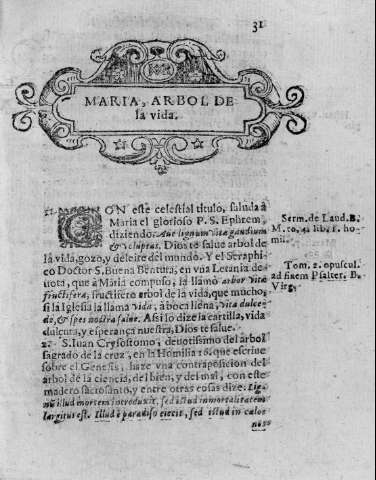 31
MARIA, ARBOL DE
la vida.
CON este celestial titulo, saluda à
Maria el glorioso P. S. Ephrem,
diziendo: Aue lignum vitæ gaudium
& voluptas. Dios te salue arbol de
la vida, gozo, y deleite del mundo. Y el Seraphi
co Doctor S. Buena Bentura, en vna Letania de
uota, que à Maria compuso, la llamò arbor vitæ
fructifera, fructifero arbol de la vida, que mucho,
si la Iglesia la llama vida, à boca llena, vita dulce-
do, & spes nostra salue. Assi lo dize la cartilla, vida
dulçura, y esperança nuestra, Dios te salue.
2. S. Iuan Crysostomo, deuotissimo del arbol
sagrado de la cruz, en la Homilia 16. que escriue
sobre el Genesis, haze vna contraposicion del
arbol de la ciencia, del bien, y del mal, con este
madero sactosanto, y entre otras cosas dize. Lig-
nū illud mortem introduxit, sed istud inmortalitatem
largitur est. Illud è paradiso eiecit, sed istud in cælos
Serm. de Laud. B.
M. to. 4. lib. 1. ho-
mil.
Tom. 2. opuscul.
ad finem Psalter. B.
Virg.